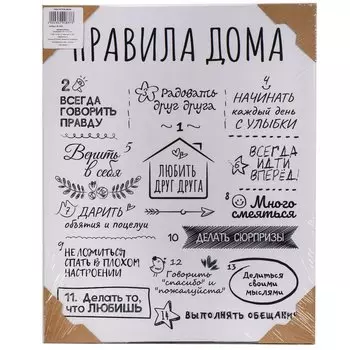 ПРАВИЛА ДОМА
2
ВСЕГДА
ГОВОРИТЬ
ПРАВДУ
Радовать
друг друга
4
НАЧИНАТЬ
каждый день
С УЛЫБКИ
1
ЛЮБИТЬ
ДРУГ ДРУГА
Верить 5
в себя
6
ВСЕГДА
ИДТИ
ВПЕРЁД!
7 ДАРИТЬ
объятия и поцелуи
8 Много
смеяться
10 ДЕЛАТЬ СЮРПРИЗЫ
9
НЕ ЛОЖИТЬСЯ
СПАТЬ В ПЛОХОМ
НАСТРОЕНИИ
12
Говорить
"спасибо" и
"пожалуйста"
13
Делиться
своими
мыслями
11. Делать то,
что ЛЮБИШЬ
ВЫПОЛНЯТЬ ОБЕЩАНИ